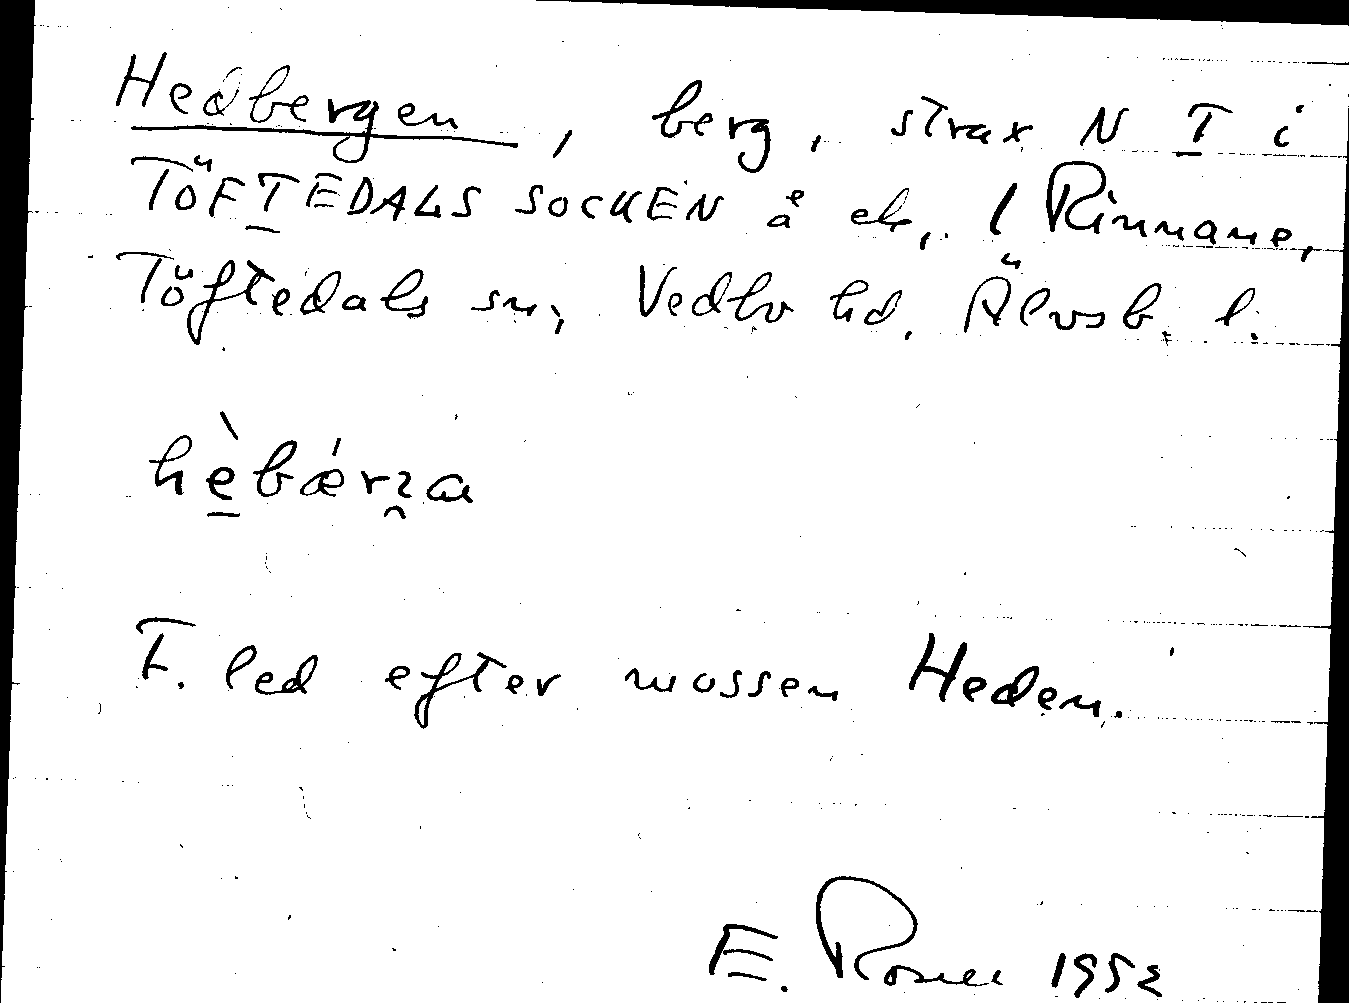 Hedbergen, berg, strax N T i
TÖFTEDALS SOCKEN å ek, / Rinnane,
Töftedals sn, Vedbo hd. Älvsb. l.
F. led efter mossen Heden.
E. Rosell 1952